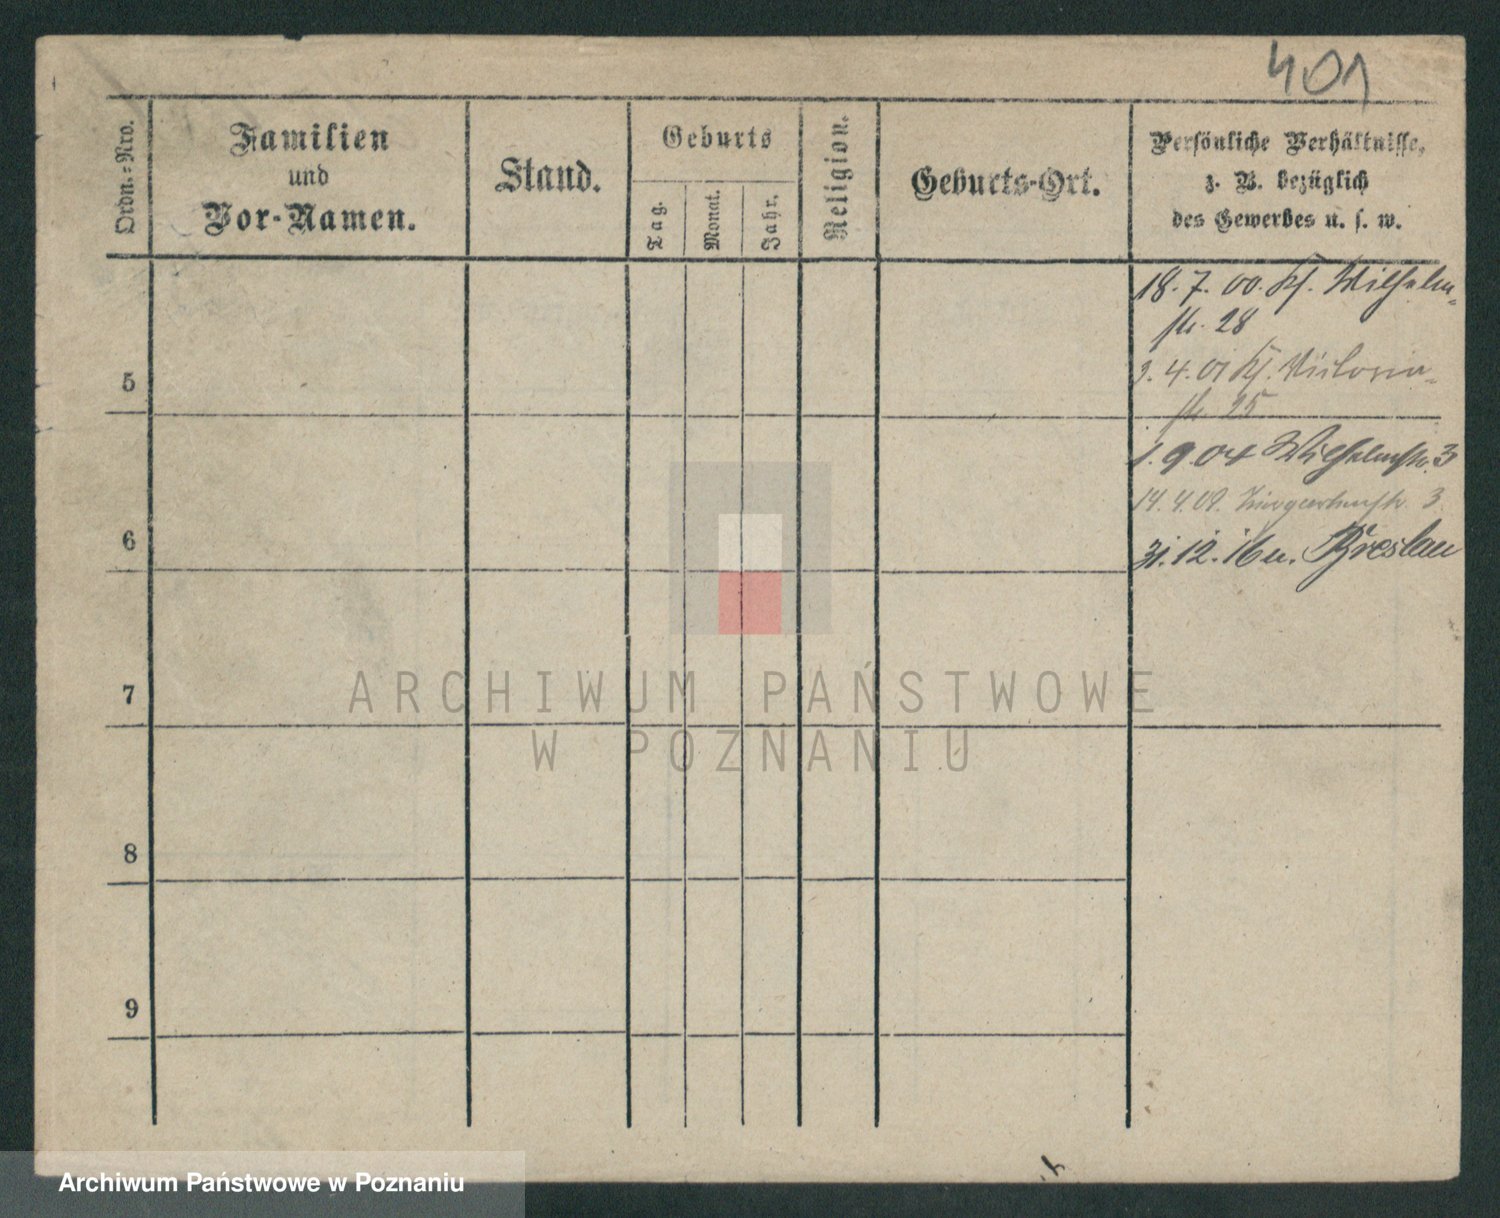 401
Ordn.=Nro.
Familien
und
Vor-Namen.
Stand.
Geburts
Tag.
Monat.
Jahr.
Religion.
Geburts-Ort.
Persönliche Verhältnisse,
z. B. bezüglich
des Gewerbes u. s. w.
18. 7. 00. Kf. Wilhelm-
str. 28
9. 4. 01 Kf. Victoria-
str. 25
5
1. 9. 04 Wilhelmstr. 3
14. 4. 09. 3.
31. 12. 16 u. Breslau
6
7
8
9
ARCHIWUM PAŃSTWOWE
W POZNANIU
Archiwum Państwowe w Poznaniu